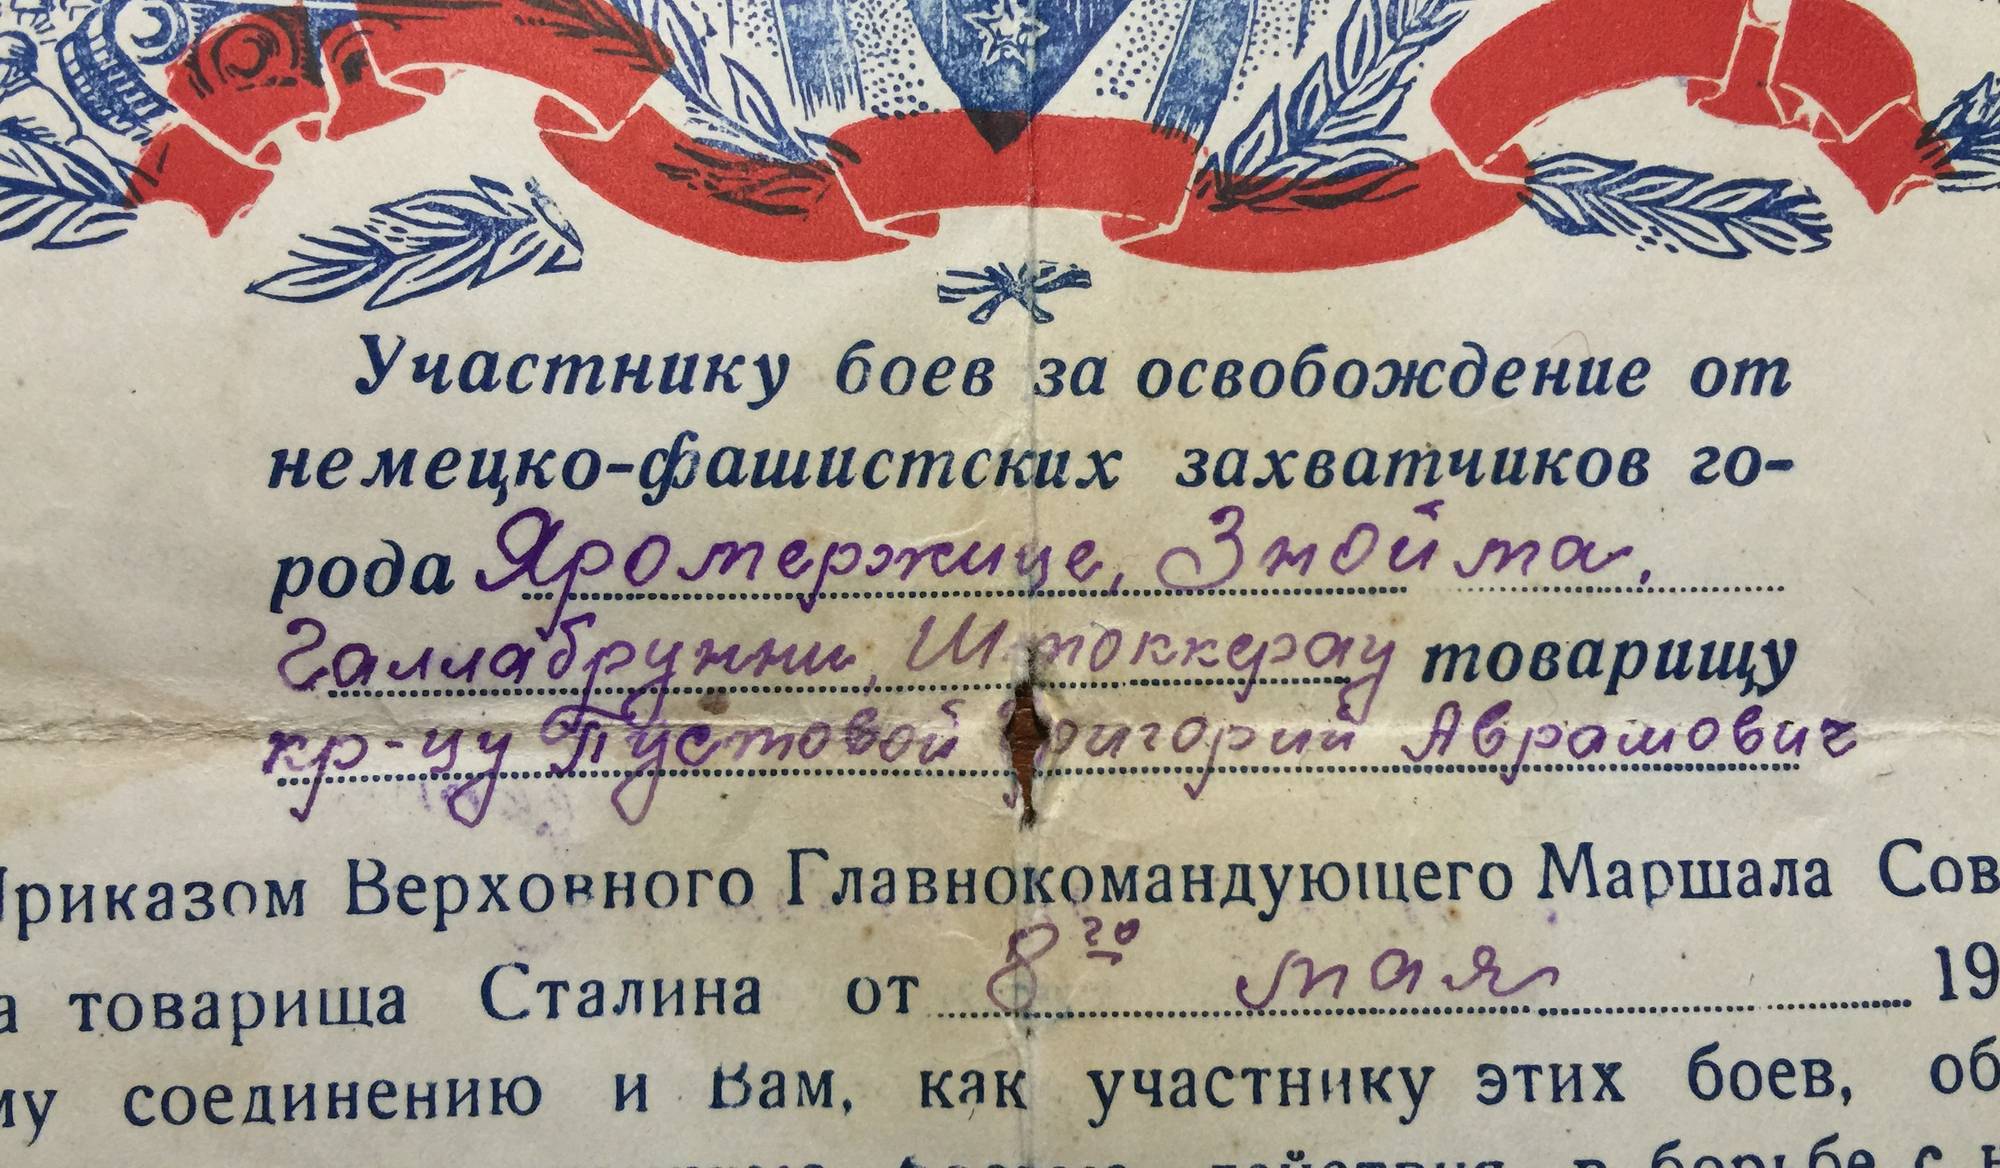 Участнику боев за освобождение от
немецко-фашистских захватчиков го-
рода Яромержице, Знойма,
Галлабрунн, Штоккерау товарищу
кр-цу Пустовой Григорий Аврамович
Приказом Верховного Главнокомандующего Маршала Сов
а товарища Сталина от 8го мая 19
му соединению и Вам, как участнику этих боев, об
действия в борьбе с н